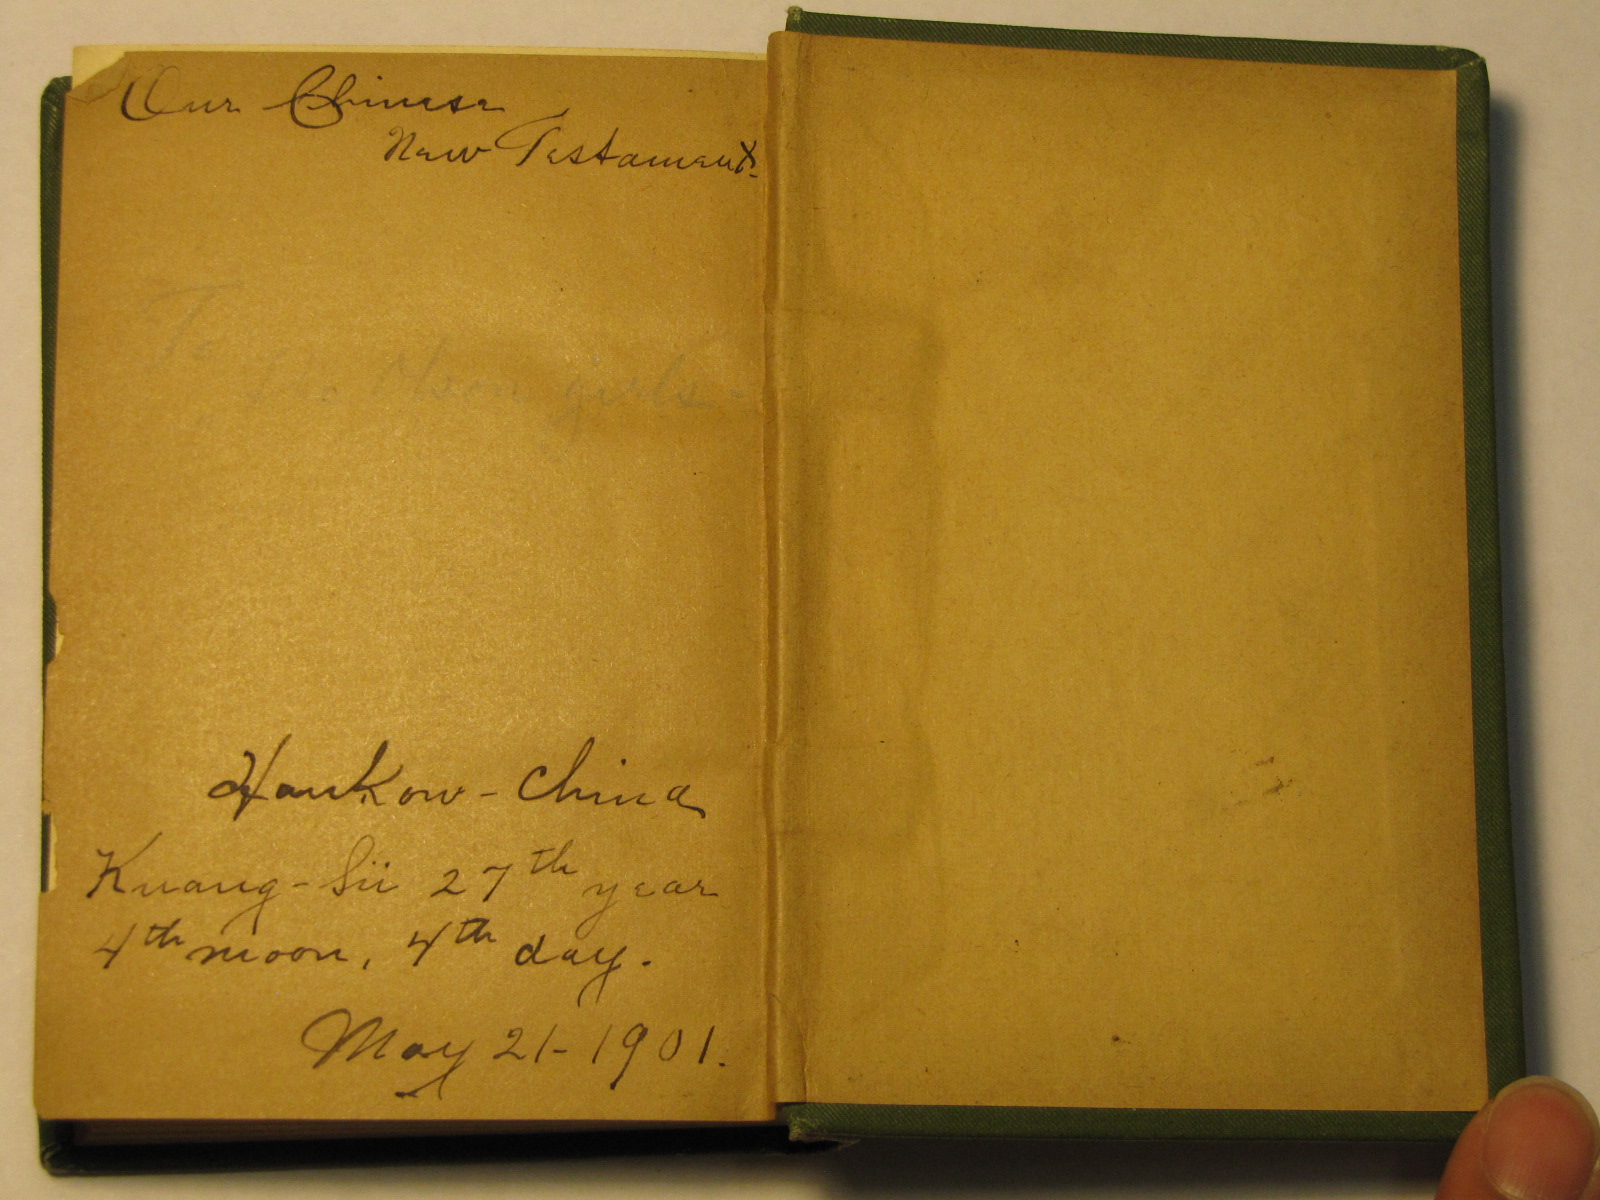 Our Chinese
New Testament.
To
The Olson girls-
Hankow - China
Kuang-Sü 27th year
4th moon, 4th day.
May 21-1901.